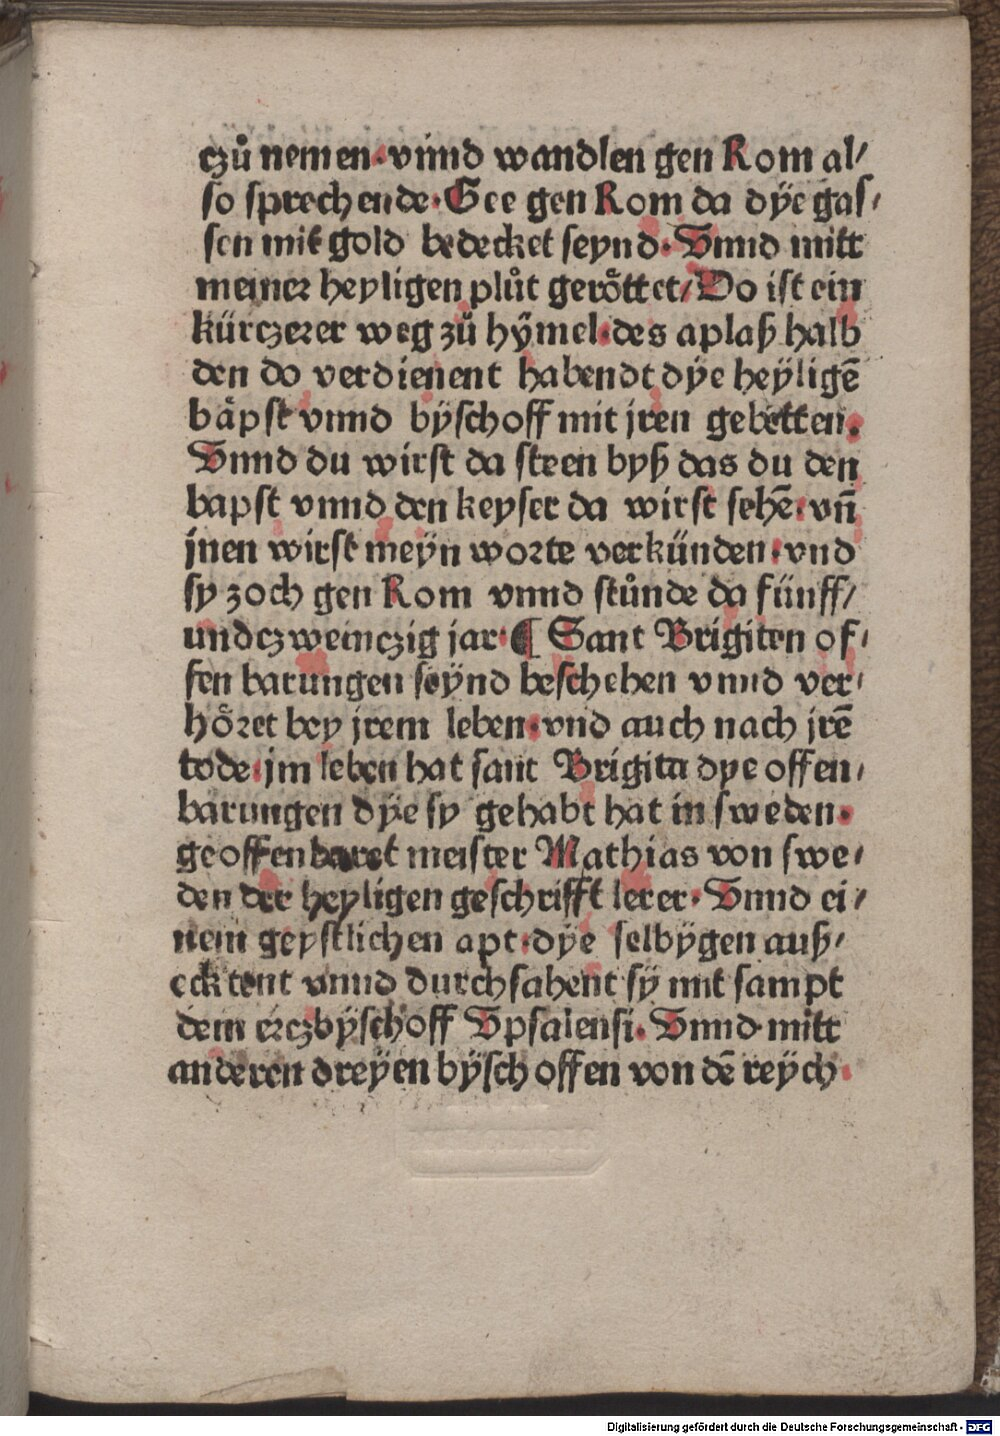 czů nemen·vnnd wandlen gen Rom al⸗
so sprechende·Gee gen Rom da dÿe gas⸗
sen mit gold bedecket seynd·Vnnd mitt
meiner heyligen plůt geröttet/Do ist ein
kürczerer weg zů hÿmel·des aplaß halb
den do verdienent habendt dÿe heÿligē
båpst vnnd bÿschoff mit jren gebetten.
Vnnd du wirst da steen byß das du den
bapst vnnd den keyser da wirst sehē·vñ
jnen wirst meÿn worte verkünden·vnd
sy zoch gen Rom vnnd stůnde da fünff⸗
undczweinczig jar·¶ Sant Brigiten of⸗
fen barungen seÿnd beschehen vnnd ver⸗
höret bey jrem leben·vnd auch nach jrē
tode·jm leben hat sant Brigita dye offen⸗
barungen dÿe sy gehabt hat in sweden·
geoffenbaret meister Mathias von swe⸗
den der heyligen geschrifft lerer·Vnnd ei⸗
nem geystlichen apt·dÿe selbÿgen auß⸗
ecktent vnnd durchsahent sÿ mit sampt
dem erczbÿschoff Vpsalensi·Vnnd mitt
anderen dreÿen bÿschoffen von dē reÿch·
Digitalisierung gefördert durch die Deutsche Forschungsgemeinschaft - DFG